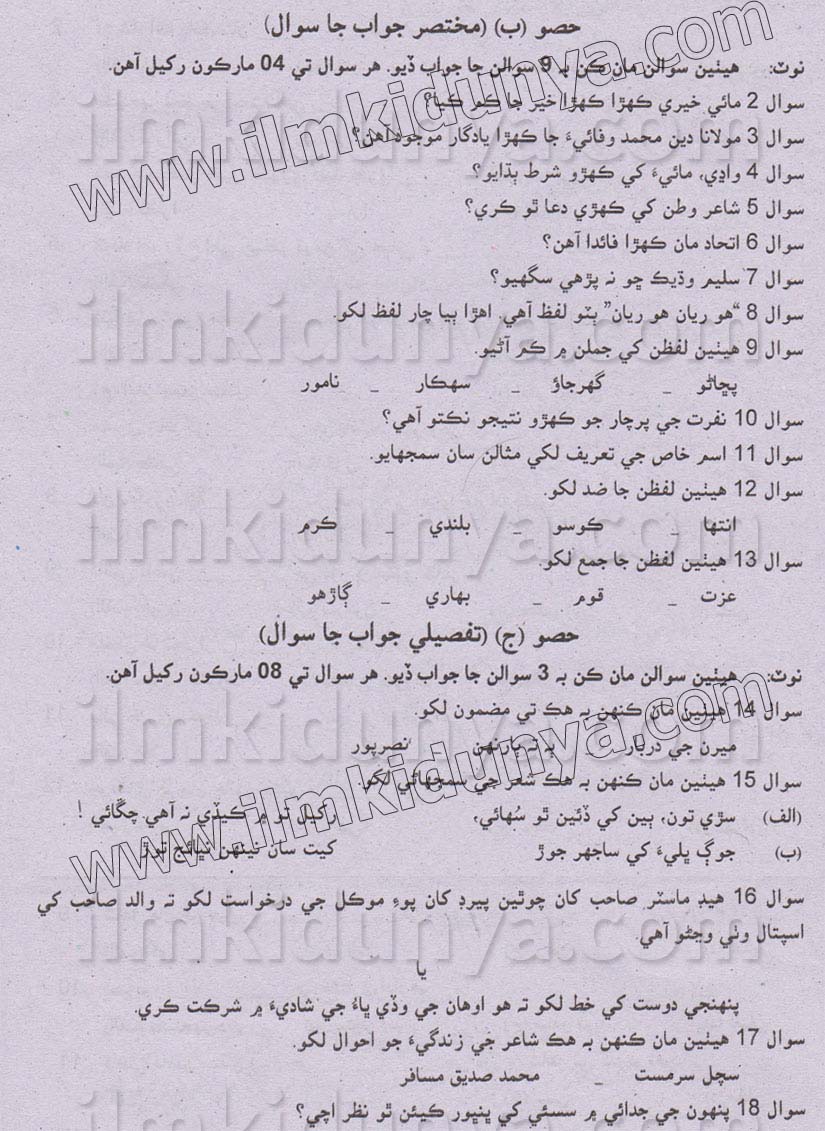 حصو (ب) (مختصر جواب جا سوال)
نوٽ: هيٺين سوالن مان ڪن بہ 9 سوالن جا جواب ڏيو. هر سوال تي 04 مارڪون رکيل آهن.
سوال 2 مائي خيري ڪهڙا ڪهڙا خير جا ڪم ڪيا؟
سوال 3 مولانا دين محمد وفائيءَ جا ڪهڙا يادگار موجود آهن؟
سوال 4 واڍي، مائيءَ کي ڪهڙو شرط ٻڌايو؟
سوال 5 شاعر وطن کي ڪهڙي دعا ٿو ڪري؟
سوال 6 اتحاد مان ڪهڙا فائدا آهن؟
سوال 7 سليم وڌيڪ ڇو نہ پڙهي سگهيو؟
سوال 8 “هو ريان هو ريان” ٻٽو لفظ آهي. اهڙا ٻيا چار لفظ لکو.
سوال 9 هيٺين لفظن کي جملن ۾ ڪم آڻيو.
پڇاڻو _ گهرجاؤ _ سهڪار _ نامور
سوال 10 نفرت جي پرچار جو ڪهڙو نتيجو نڪتو آهي؟
سوال 11 اسم خاص جي تعريف لکي مثالن سان سمجهايو.
سوال 12 هيٺين لفظن جا ضد لکو.
انتها _ ڪوسو _ بلندي _ ڪرم
سوال 13 هيٺين لفظن جا جمع لکو.
عزت _ قوم _ بهاري _ ڳاڙهو
حصو (ج) (تفصيلي جواب جا سوال)
نوٽ: هيٺين سوالن مان ڪن بہ 3 سوالن جا جواب ڏيو. هر سوال تي 08 مارڪون رکيل آهن.
سوال 14 هيٺين مان ڪنهن بہ هڪ تي مضمون لکو.
ميرن جي دربار _ ٻہ تہ ٻارنهن _ نصرپور
سوال 15 هيٺين مان ڪنهن بہ هڪ شعر جي سمجهاڻي لکو.
(الف) سڙي تون، ٻين کي ڏئين ٿو سُهائي، رکيل تو ۾ ڪيڏي نہ آهي چڱائي !
(ب) جوڳ ڀليءَ کي ساجهر جوڙ کيت سان نينهن نڀائج توڙ
سوال 16 هيڊ ماسٽر صاحب کان چوٿين پيرڊ کان پوءِ موڪل جي درخواست لکو تہ والد صاحب کي
اسپتال وٺي وڃڻو آهي.
يا
پنهنجي دوست کي خط لکو تہ هو اوهان جي وڏي ڀاءُ جي شاديءَ ۾ شرڪت ڪري.
سوال 17 هيٺين مان ڪنهن بہ هڪ شاعر جي زندگيءَ جو احوال لکو.
سچل سرمست _ محمد صديق مسافر
سوال 18 پنهون جي جدائي ۾ سسئي کي ڀنڀور ڪيئن ٿو نظر اچي؟
www.ilmkidunya.com
www.ilmkidunya.com
ilmkidunya.com
ilmkidunya.com
ilmkidunya.com
ilmkidunya.com
ilmkidunya.com
ilmkidunya.com